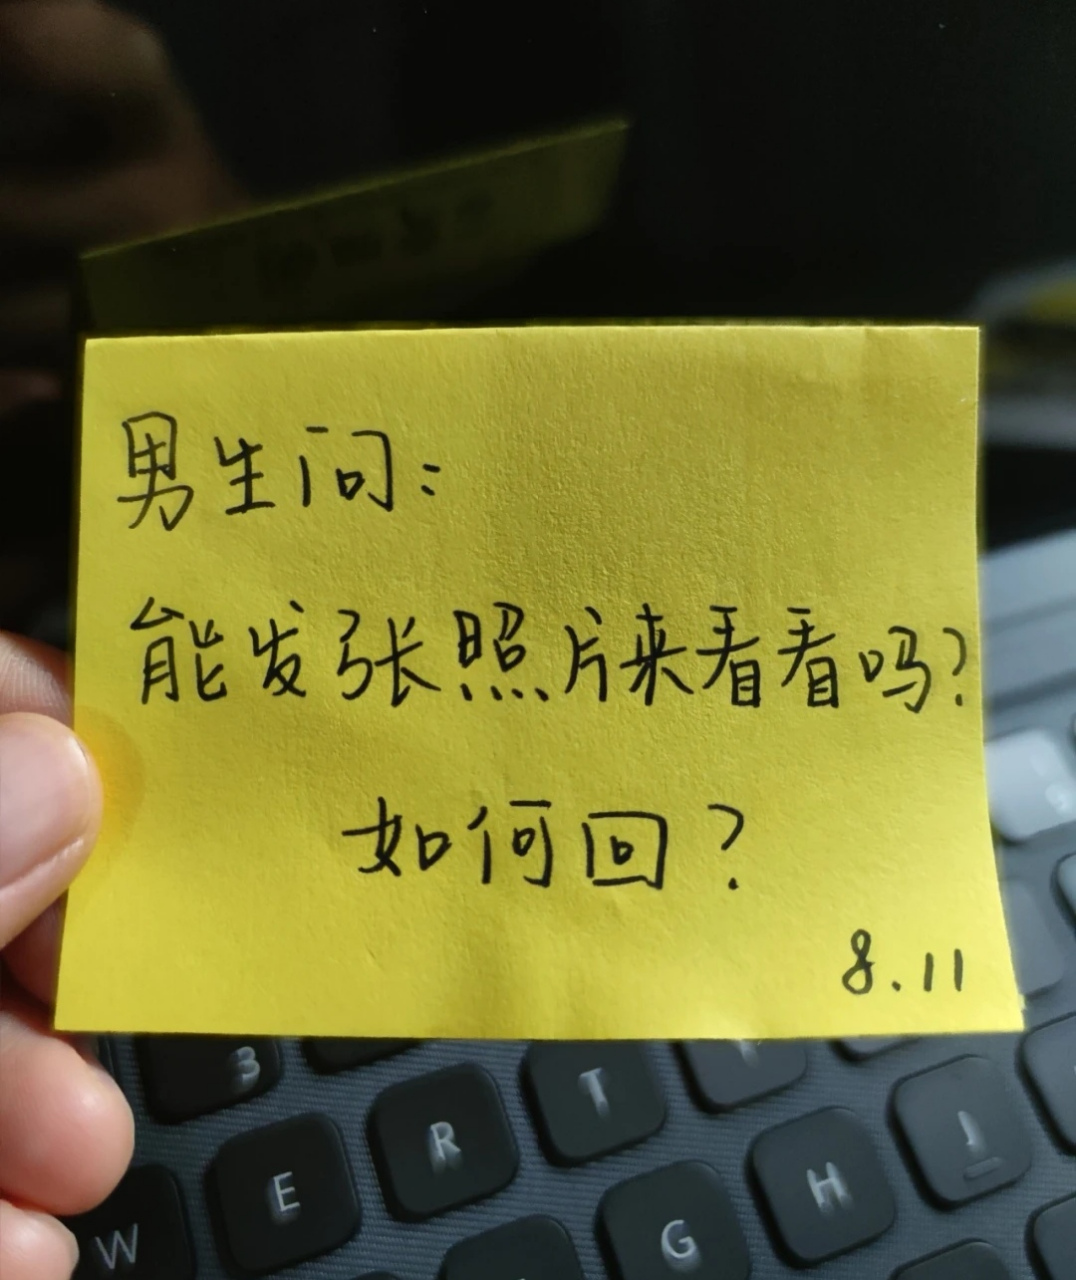 男生问：
能发张照片来看看吗？
如何回？
8.11
3
R T
W E G H J